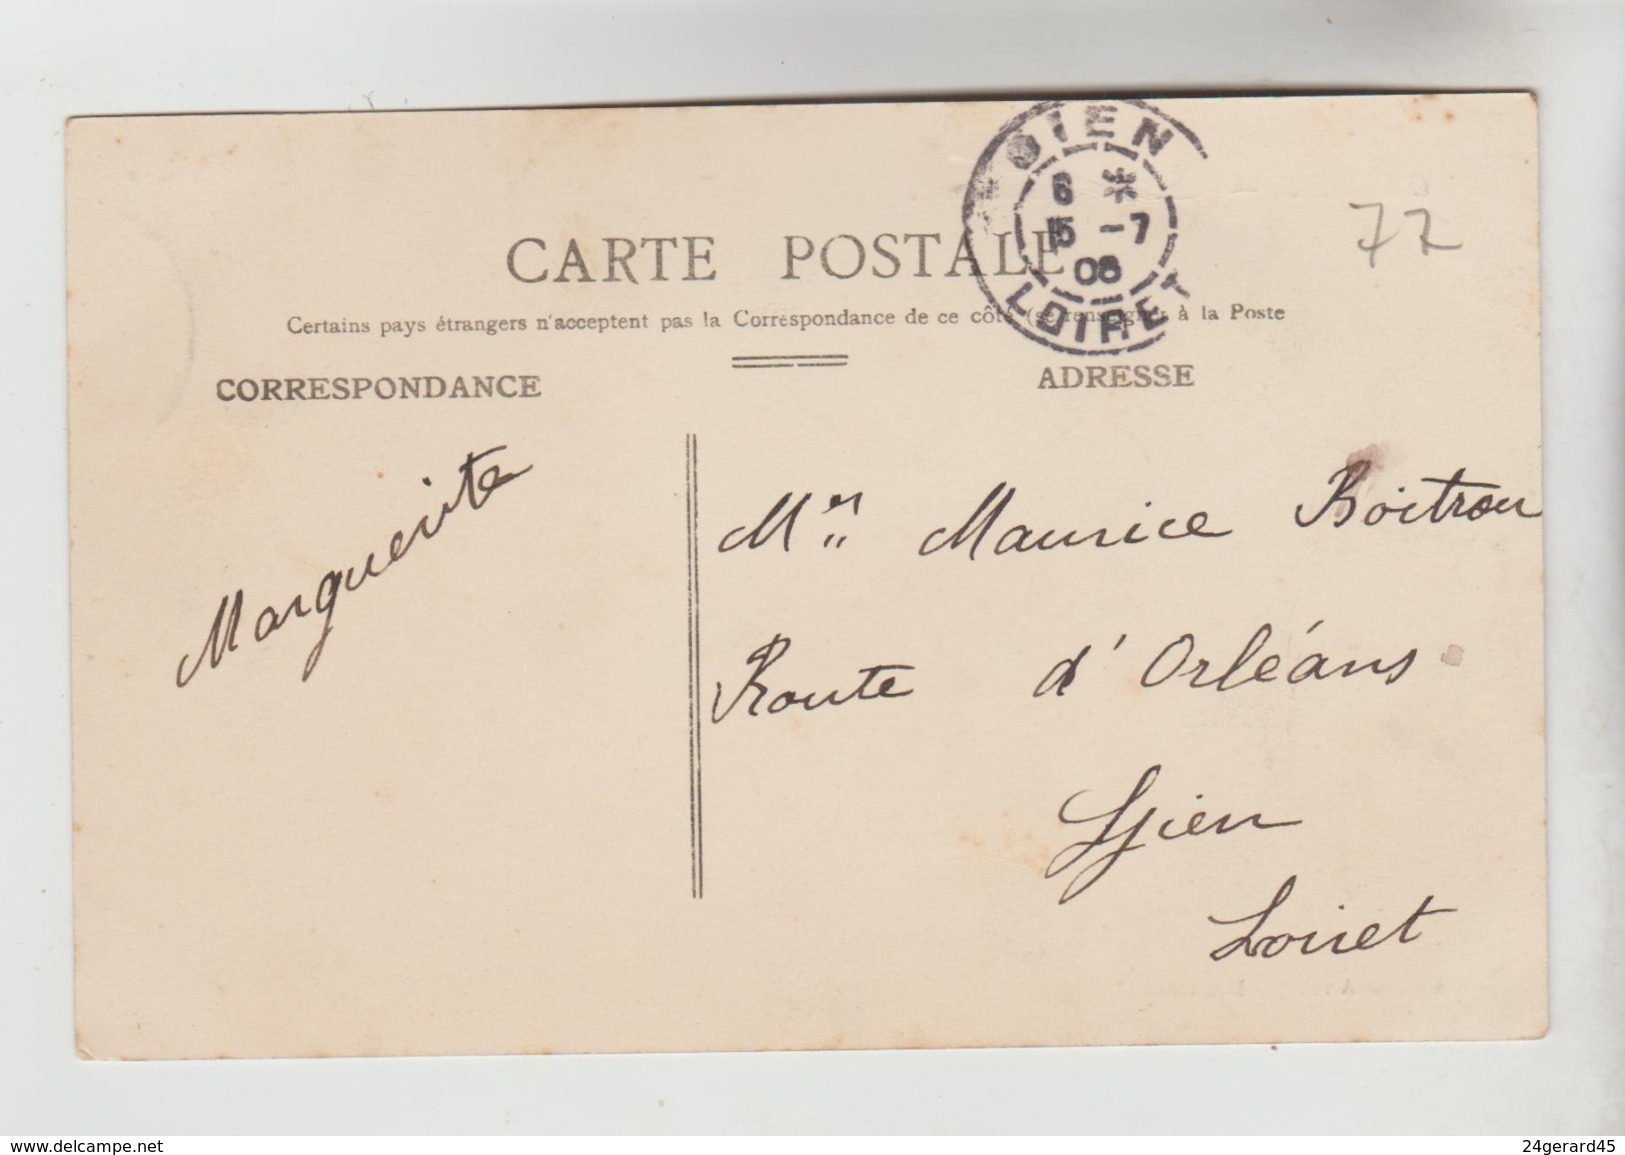 GIEN
6 *
15 -7
08
LOIRET
77
CARTE POSTALE
Certains pays étrangers n'acceptent pas la Correspondance de ce côté (se renseigner à la Poste
CORRESPONDANCE
ADRESSE
Marguerite
Maurice Boitrou
Route d'Orléans
Gien
Loiret
www.delcampe.net
24gerard45